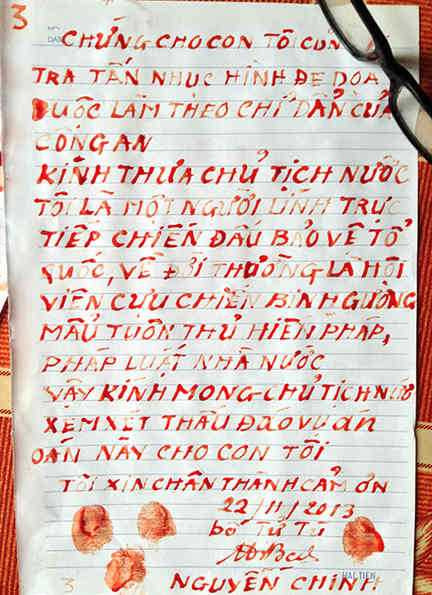 3
CHỨNG CHO CON TÔI CŨNG BỊ
TRA TẤN NHỤC HÌNH ĐE DỌA
BUỘC LÀM THEO CHỈ DẪN CỦA
CÔNG AN
KÍNH THƯA CHỦ TỊCH NƯỚC
TÔI LÀ MỘT NGƯỜI LÍNH TRỰC
TIẾP CHIẾN ĐẤU BẢO VỆ TỔ
QUỐC, VỀ ĐỜI THƯỜNG LÀ HỘI
VIÊN CỰU CHIẾN BINH GƯƠNG
MẪU TUÂN THỦ HIẾN PHÁP,
PHÁP LUẬT NHÀ NƯỚC
VẬY KÍNH MONG CHỦ TỊCH NƯỚC
XEM XÉT THẤU ĐÁO VỤ ÁN
OAN NÀY CHO CON TÔI
TÔI XIN CHÂN THÀNH CẢM ƠN
22/11/2013
bố Tử Tù
NGUYỄN CHÍNH
HẢI TIẾN
3